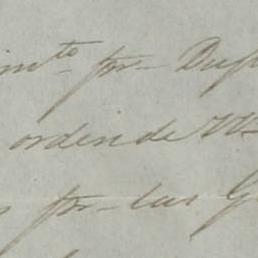 por Dup
orden de
por las G